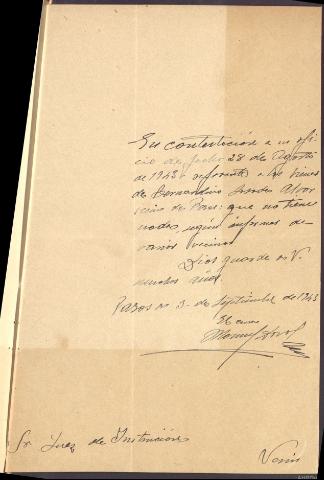 En contestación a su ofi-
cio de fecha 28 de Agosto
de 1943 referente a los bienes
de Bernardino
de : que no tiene
nada, según informes de
varios vecinos
Dios guarde a V.
muchos años.
3 de Septiembre de 1943
El cura
Manuel
Sr Juez de Instrucción